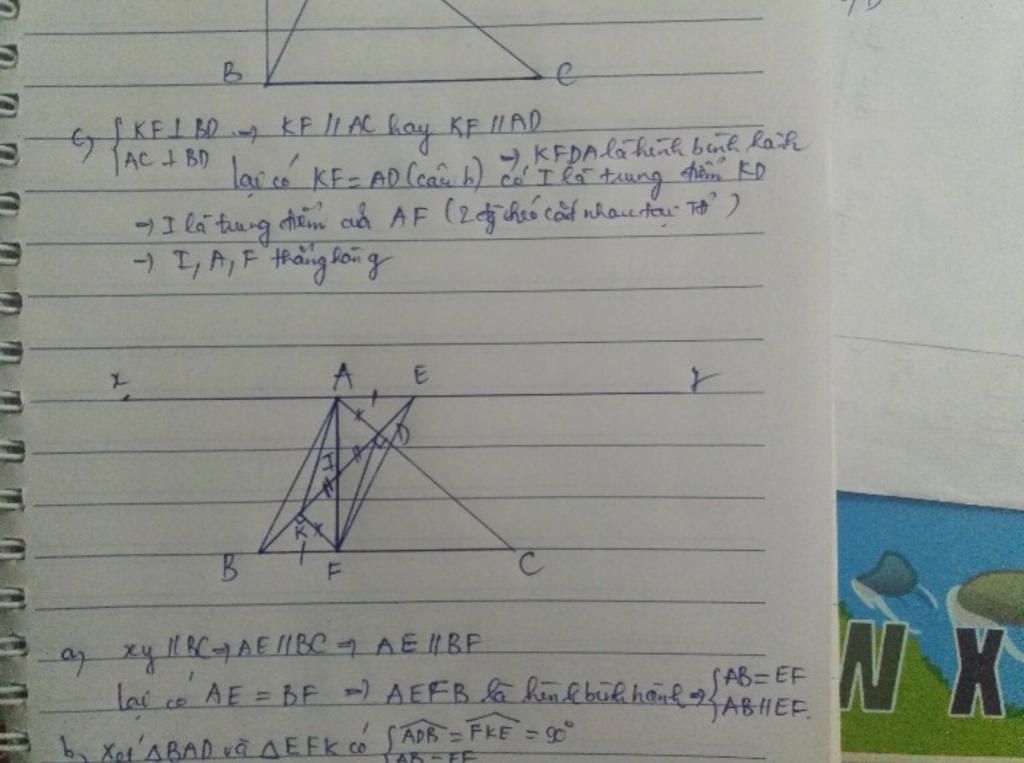 B C
c, { KF ⊥ BD → KF // AC hay KF // AD
AC ⊥ BD → KFDA là hình bình hành
lại có KF = AD (câu b) có I là trung điểm KD
→ I là trung điểm của AF (2 đg chéo cắt nhau tại TĐ)
→ I, A, F thẳng hàng
x A E y
D
I
K
B F C
a, xy // BC → AE // BC → AE // BF
lại có AE = BF → AEFB là hình bình hành → { AB = EF
AB // EF.
b, Xét ΔBAD và ΔEFK có { ADB = FKE = 90°
AB = EF
N X